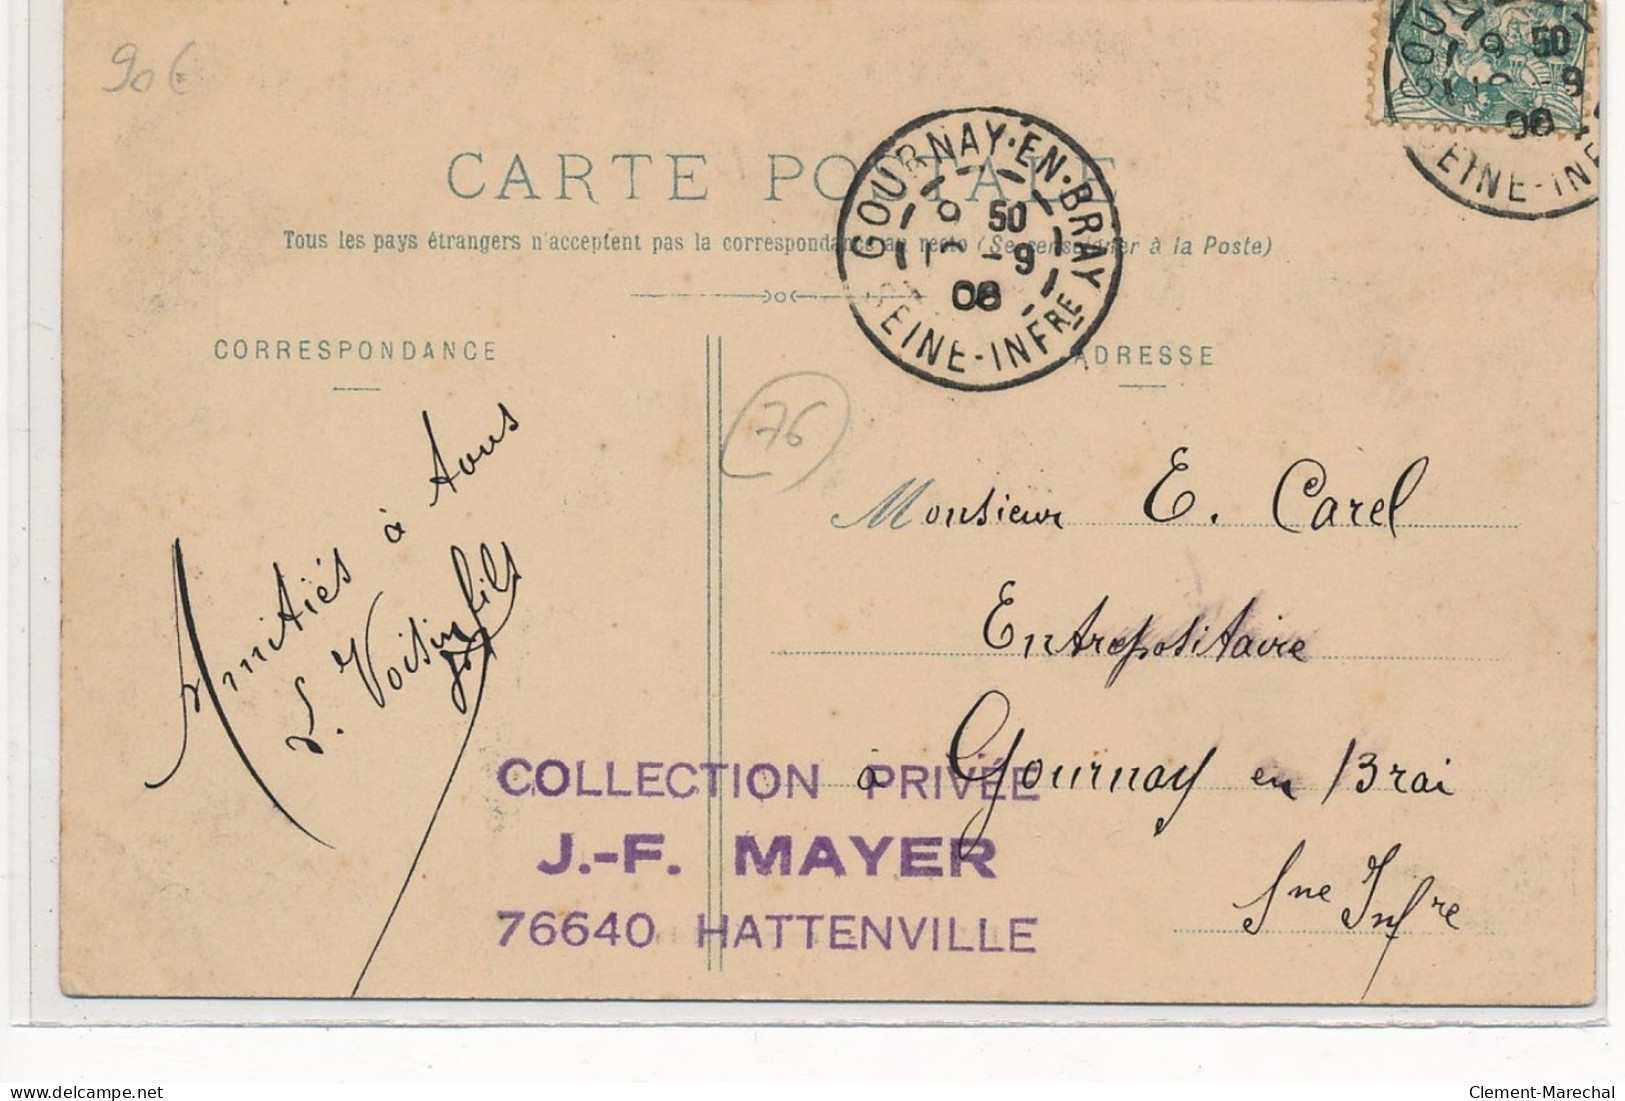 90€
CARTE POSTALE
Tous les pays étrangers n'acceptent pas la correspondance au recto (Se renseigner à la Poste)
GOURNAY-EN-BRAY
9 50
-9
08
SEINE-INFRE
9 50
-9
08
SEINE-INF
CORRESPONDANCE
ADRESSE
76
Amitiés à tous
L. Voisin fils
Monsieur E. Carel
Entrepositaire
à Gournay en Brai
Sne Infre
COLLECTION PRIVÉE
J.-F. MAYER
76640 HATTENVILLE
delcampe.net
Clement-Marechal